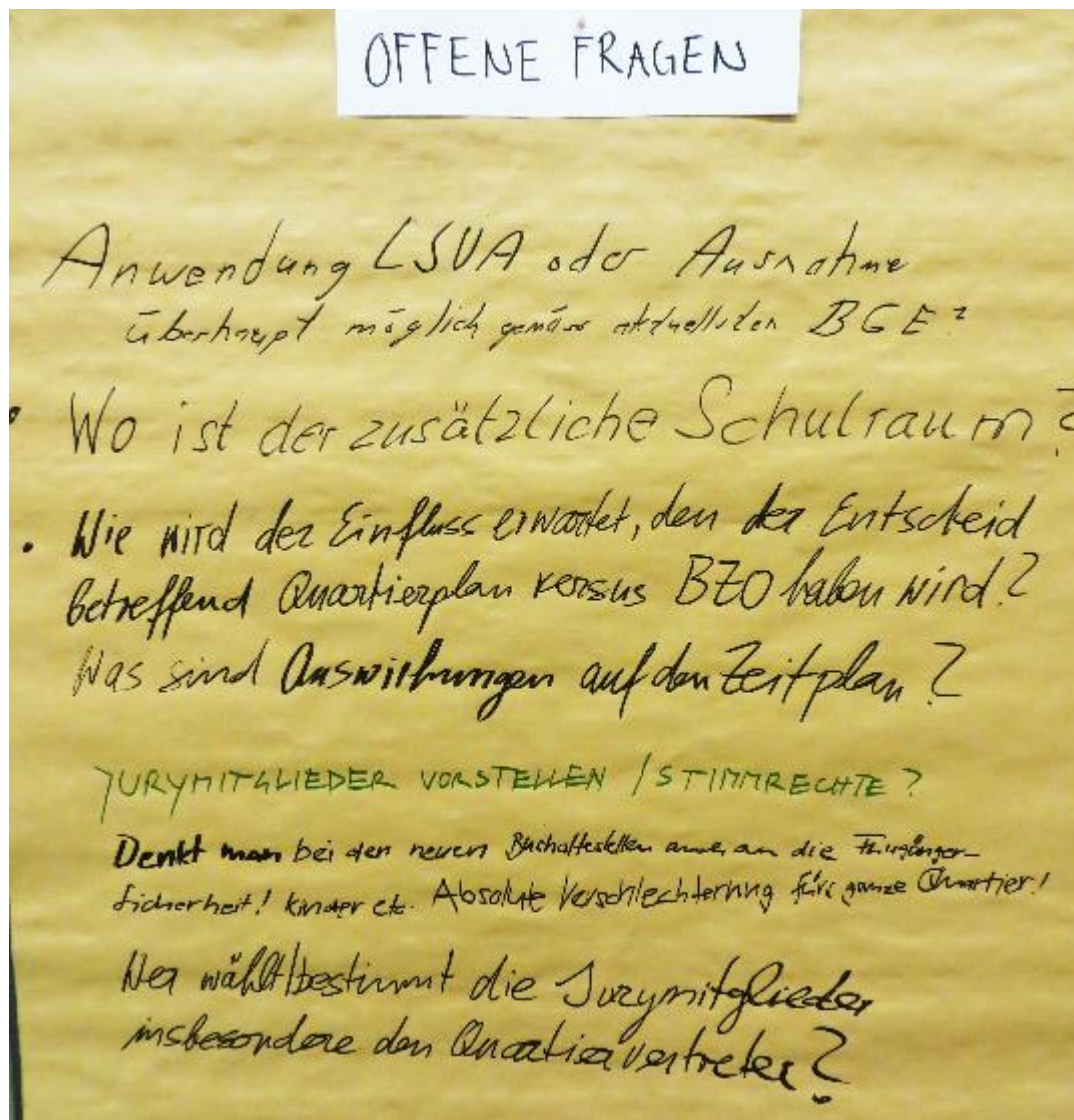 OFFENE FRAGEN
Anwendung LSVA oder Ausnahme
überhaupt möglich gemäss aktuellsten BGE?
• Wo ist der zusätzliche Schulraum?
• Wie wird der Einfluss erwartet, den der Entscheid
betreffend Quartierplan versus BZO haben wird?
Was sind Auswirkungen auf den Zeitplan?
JURYMITGLIEDER VORSTELLEN / STIMMRECHTE?
Denkt man bei den neuen Bushaltestellen an die Fussgänger-
sicherheit! Kinder etc. Absolute Verschlechterung fürs ganze Quartier!
Wer wählt/bestimmt die Jurymitglieder
insbesondere den Quartiervertreter?